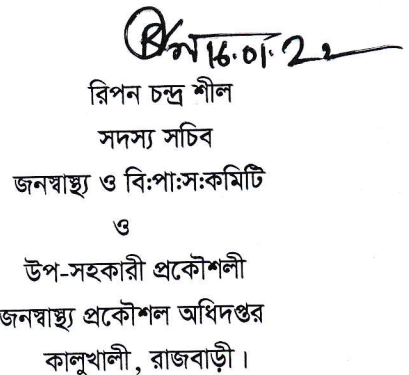 16.01.22
রিপন চন্দ্র শীল
সদস্য সচিব
জনস্বাস্থ্য ও বি:পা:স:কমিটি
ও
উপ-সহকারী প্রকৌশলী
জনস্বাস্থ্য প্রকৌশল অধিদপ্তর
কালুখালী, রাজবাড়ী।